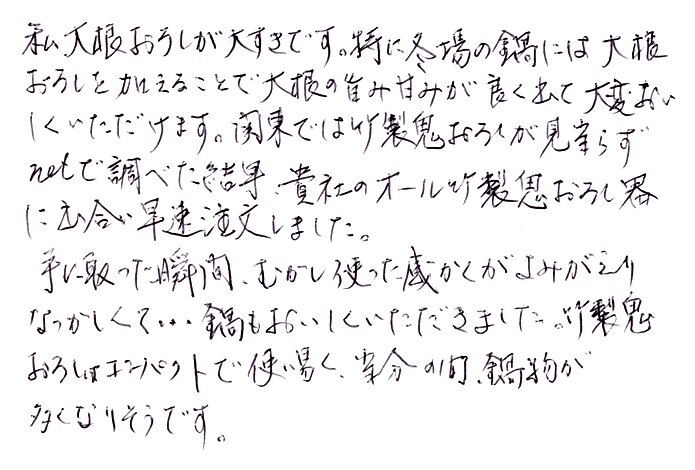 私大根おろしが大すきです。特に冬場の鍋には大根
おろしを加えることで大根の旨み甘みが良く出て大変おい
しくいただけます。関東では竹製鬼おろしが見当らず
netで調べた結果、貴社のオール竹製鬼おろし器
に出合い早速注文しました。
手に取った瞬間、むかし使った感かくがよみがえり
なつかしくて・・・鍋もおいしくいただきました。竹製鬼
おろしはコンパクトで使い易く、当分の間、鍋物が
多くなりそうです。